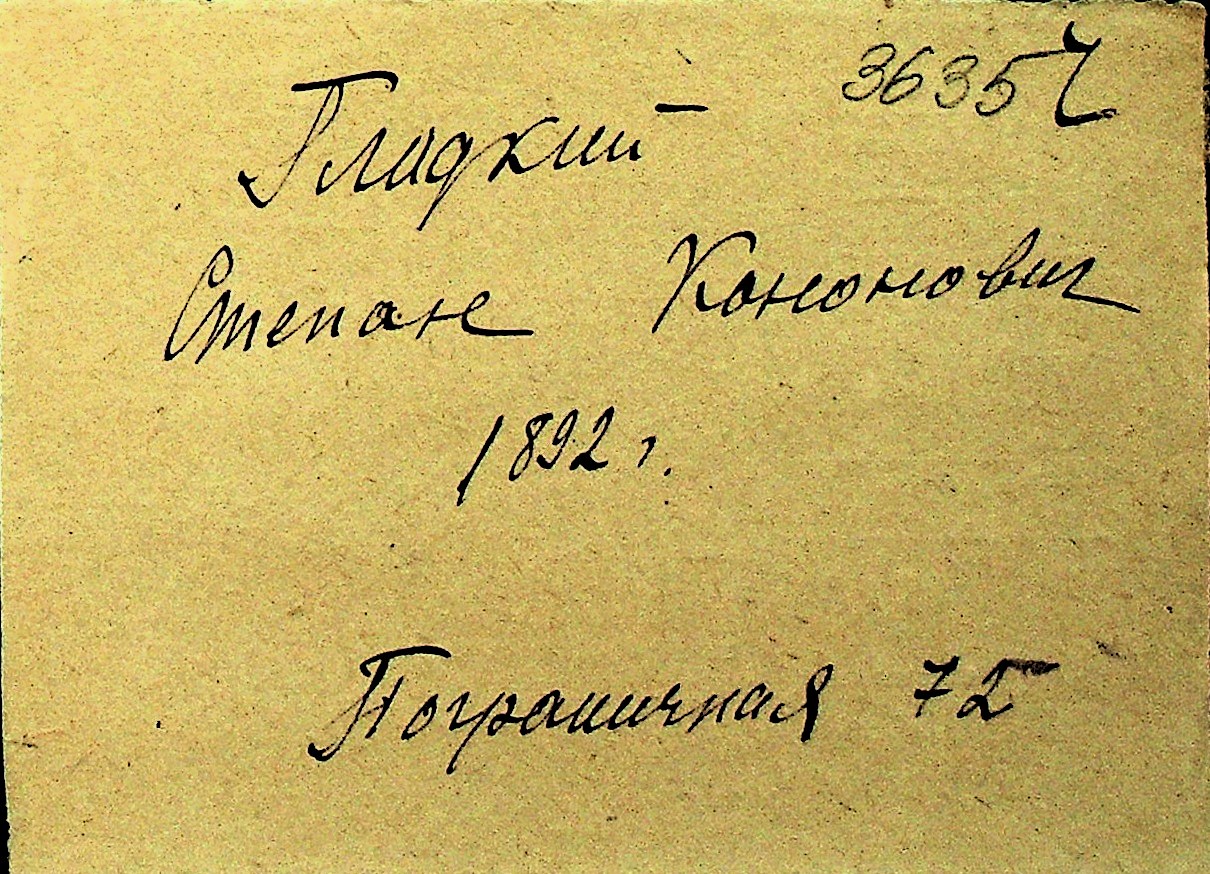 36357
Гладкий
Степан Кононович
1892 г.
Пограничная 75